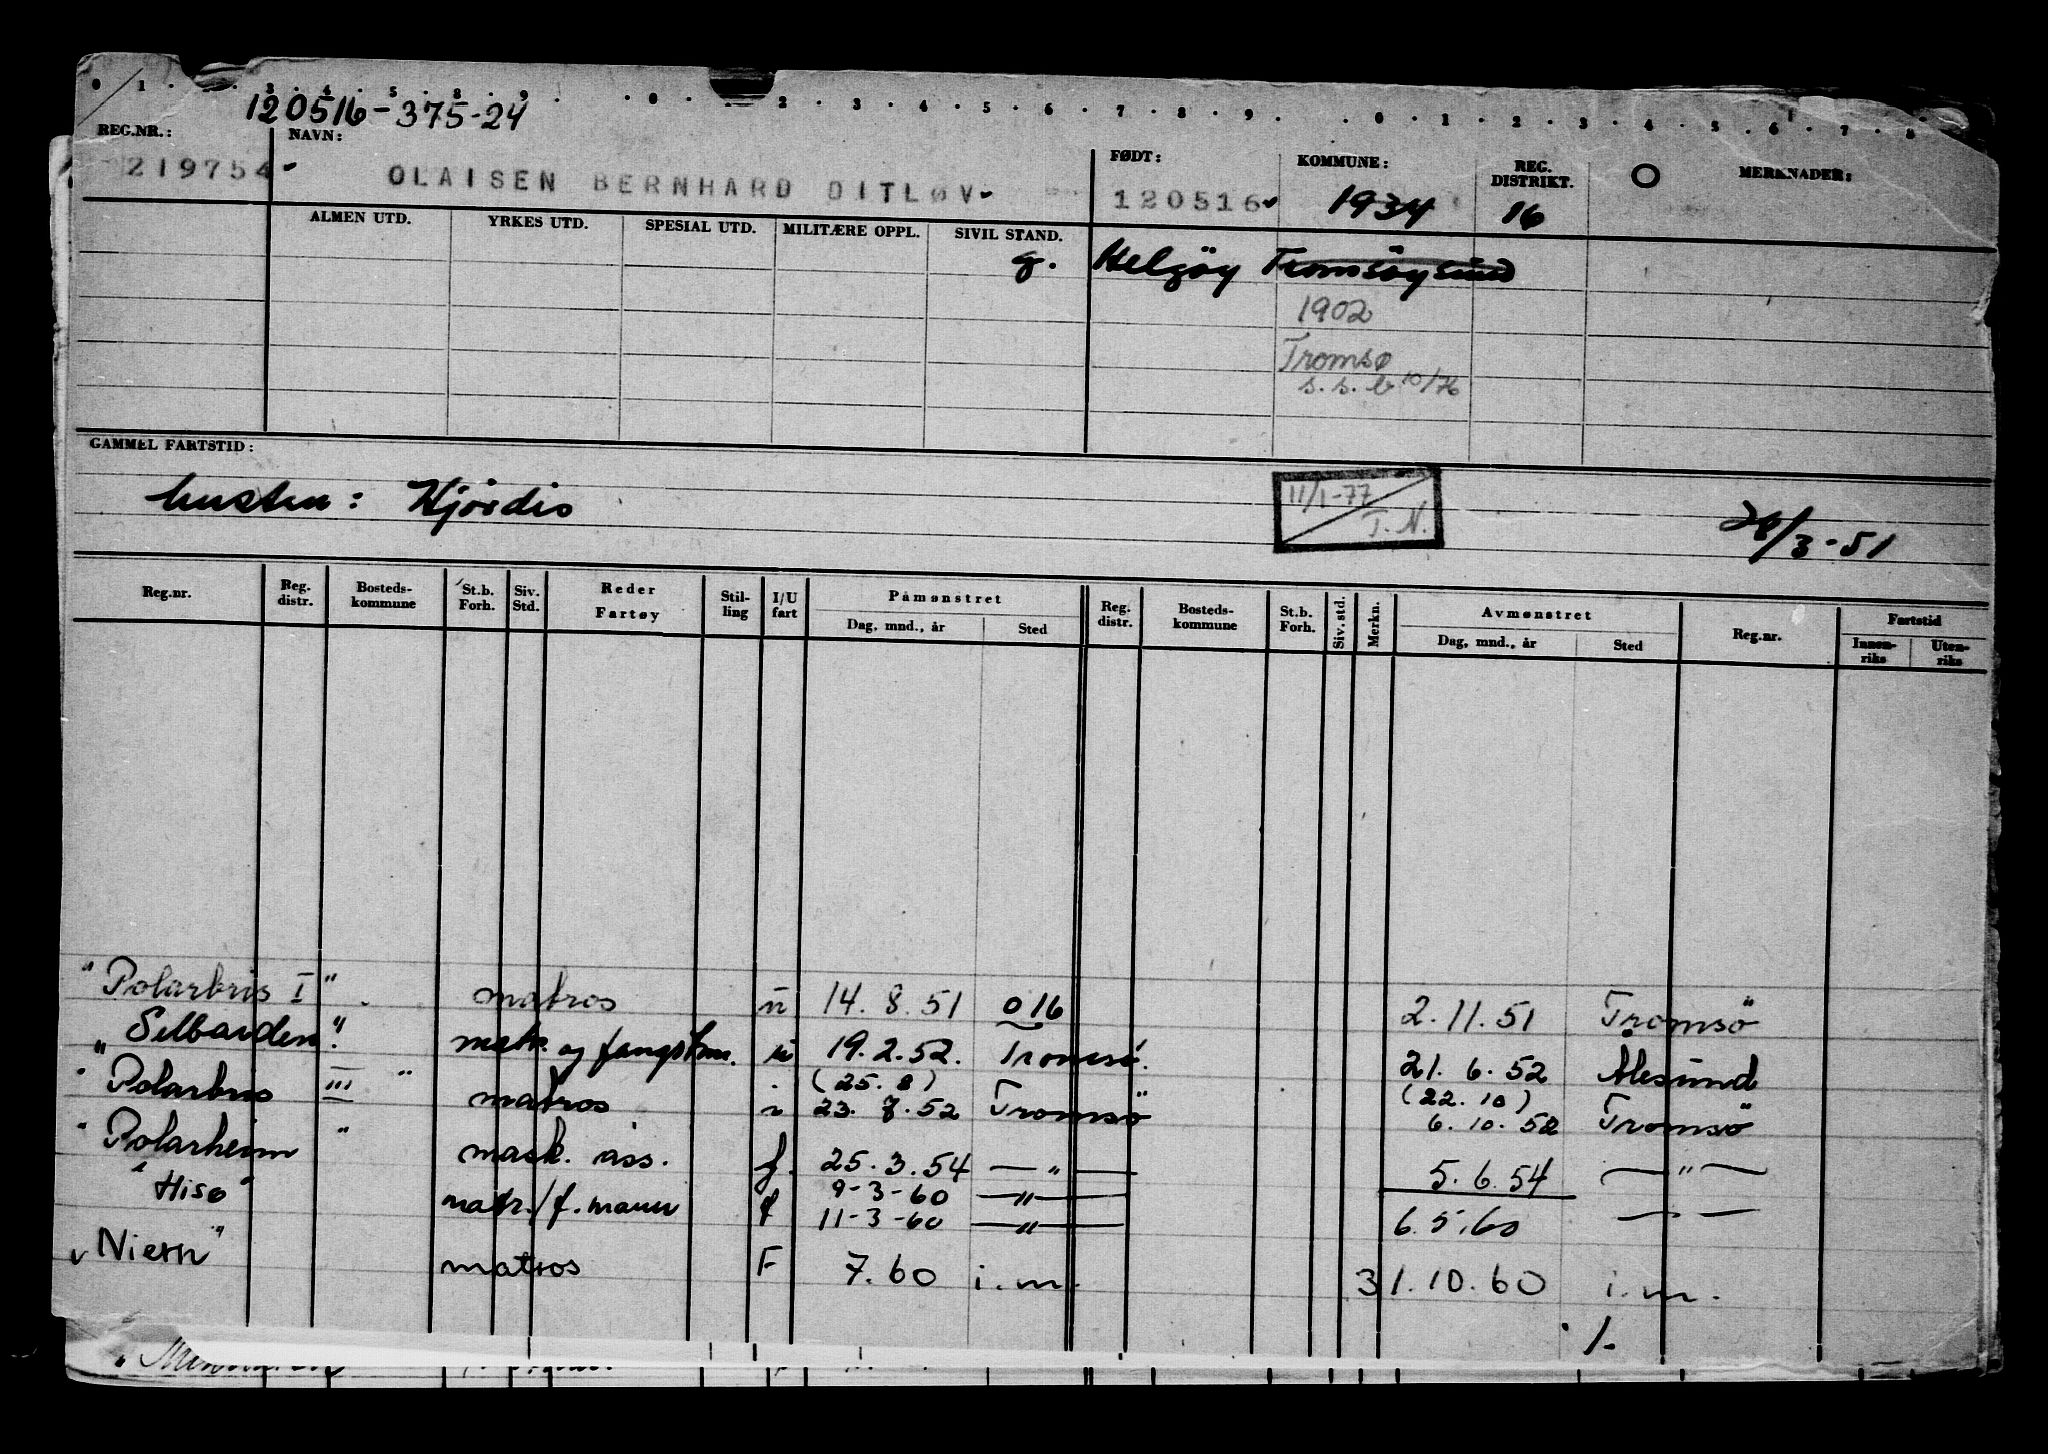 0 1 . . 3 . 4 . 5 . 8 . 9 . . 0 . . 2 . 3 . 4 . 5 . 6 . 7 . 8 . 9 . . 0 . 1 . 2 . 3 . 4 . 5 . 6 . 7 . 8
120516-375-24
REG.NR.: NAVN: FØDT: KOMMUNE: REG. DISTRIKT. O MERKNADER:
219754 OLAISEN BERNHARD DITLØV 120516 1934 16
ALMEN UTD. YRKES UTD. SPESIAL UTD. MILITÆRE OPPL. SIVIL STAND.
g. Helgöy Tromsöysund
1902
Tromsø
s.s.b 10/76
GAMMEL FARTSTID:
husten: Hjördis 11/1-77 T.N. 28/3-51
Reg.nr. Reg. distr. Bosteds-kommune St.b. Forh. Siv. Std. Reder Fartøy Stil-ling I/U fart Påmønstret Dag, mnd., år Sted Reg. distr. Bosteds-kommune St.b. Forh. Siv. std. Merkn. Avmønstret Dag, mnd., år Sted Reg.nr. Fartstid Innen-riks Uten-riks
"Polarbris I" matros u 14.8.51 016 2.11.51 Tromsö
"Selbarden" matr. og fangstm. u 19.2.52. Tromsö. 21.6.52 Alesund
(25.8) (22.10)
"Polarbris III" matros i 23.7.52 Tromsö 6.10.52 Tromsö
"Polarheim" mask. ass. f. 25.3.54 —"— 5.6.54 —"—
9-3-60 —"—
"Hisø" matr./f.mann f 11-3-60 —"— 6.5.60 — —
"Niern" matros F 7.60 i.m. 31.10.60 i.m.
./.